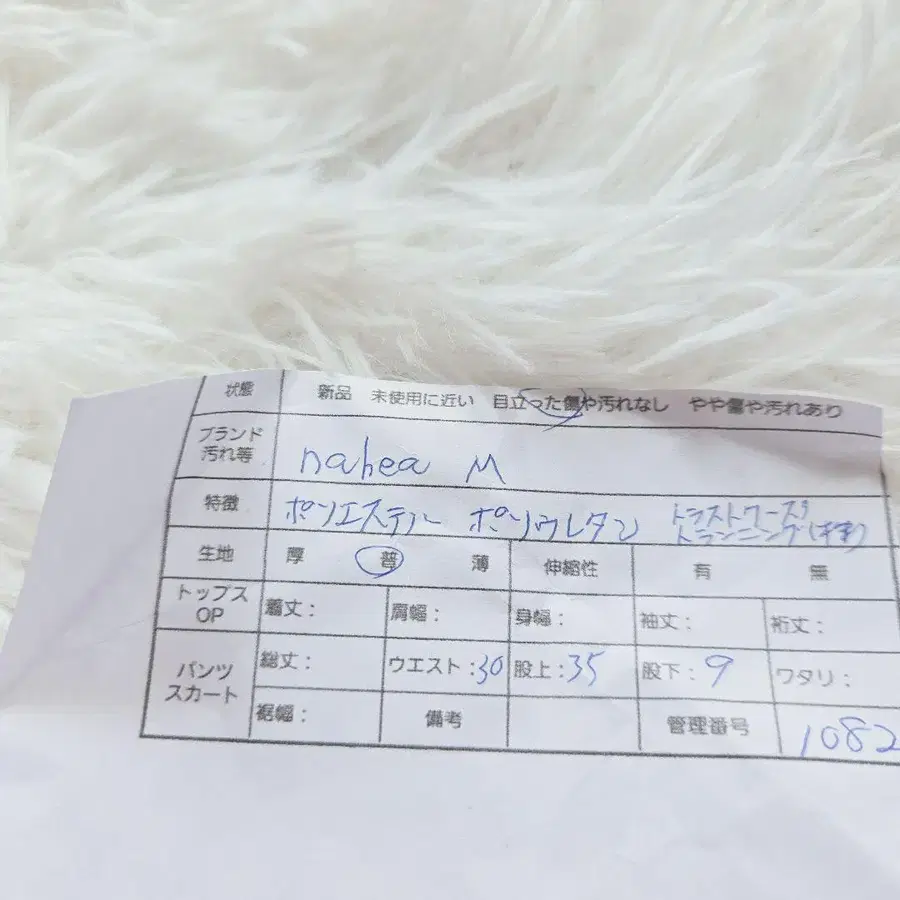 状態 新品 未使用に近い 目立った傷や汚れなし やや傷や汚れあり
ブランド 汚れ等 nahea M
特徴 ポリエステル ポリウレタン
生地 厚 普 薄 伸縮性 有 無
トップス OP 着丈: 肩幅: 身幅: 袖丈: 裄丈:
パンツ スカート 総丈: ウエスト:30 股上:35 股下:9 ワタリ:
裾幅: 備考 管理番号 1082